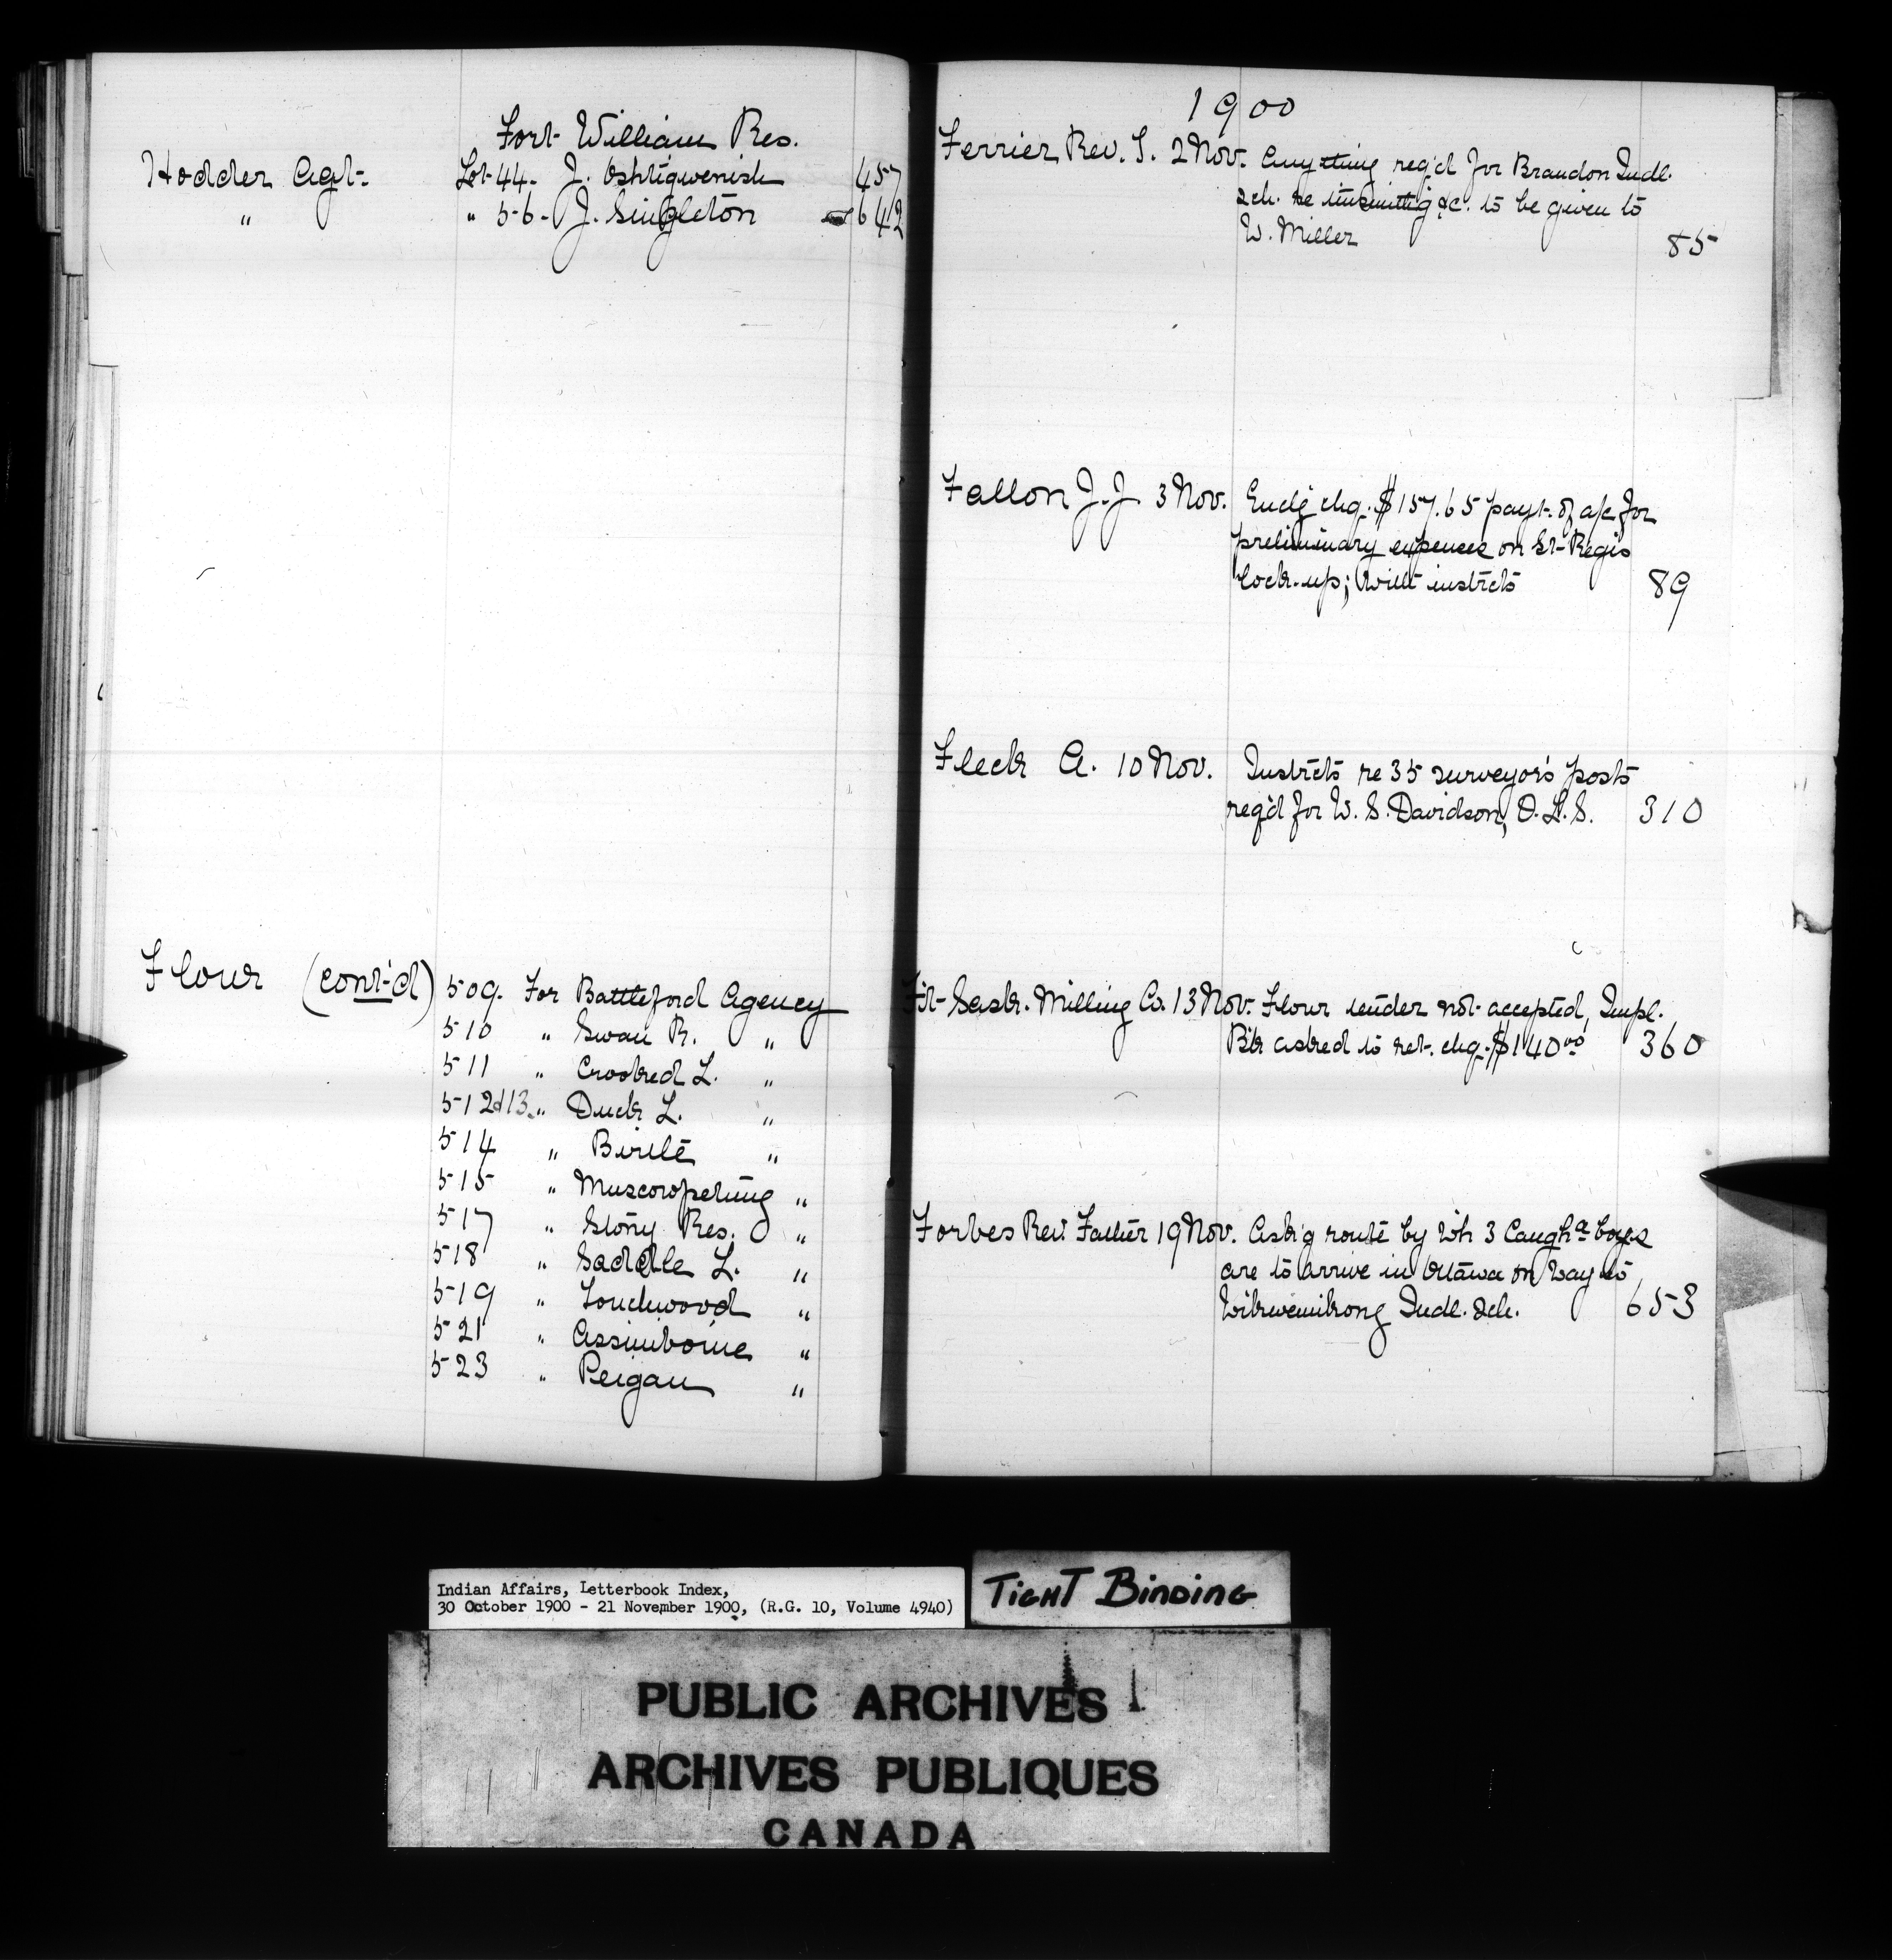 Fort William Res.
Hodder Agt. Lot 44. J. Oshkigwenish 457
" " 56. J. Singleton 642
Flour (cont'd) 509. For Battleford Agency
510 " Swan R. "
511 " Crooked L. "
512&13 " Duck L. "
514 " Birtle "
515 " Muscowpetung "
517 " Stony Res. "
518 " Saddle L. "
519 " Touchwood "
521 " Assiniboine "
523 " Peigan "
1900
Ferrier Rev. T. 2 Nov. Anything req'd for Brandon Indl.
Sch. re tinsmith'g &c. to be given to
W. Miller 85
Fallon J.J 3 Nov. Encl'g chq. $157.65 payt. of a/c for
preliminary expenses on St. Regis
lock-up; with instrcts 89
Fleck A. 10 Nov. Instrcts re 35 surveyor's posts
req'd for W. S. Davidson, D.L.S. 310
Ft. Sask. Milling Co. 13 Nov. Flour tender not accepted, Impl.
Bk asked to ret. chq. $140.00 360
Forbes Rev. Father 19 Nov. Ask'g route by wh 3 Caugha boys
are to arrive in Ottawa on way to
Wikwemikong Indl. Sch. 653
Indian Affairs, Letterbook Index,
30 October 1900 - 21 November 1900, (R.G. 10, Volume 4940)
TIGHT BINDING
PUBLIC ARCHIVES
ARCHIVES PUBLIQUES
CANADA